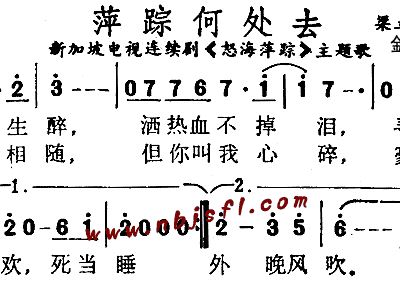 萍踪何处去
新加坡电视连续剧《怒海萍踪》主题歌
梁
· 2 | 3 - - - | 0 7 7 6 7 · 1 | 1 7 - · | 0
生 醉, 洒热血不掉 泪,
相 随, 但你叫我心 碎,
1. 2.
2 0 - 6 1 | 2 0 0 0 :| 2 - 3 5 | 6 - - -
www.nhjsfl.com
欢, 死当 睡 外 晚风 吹。